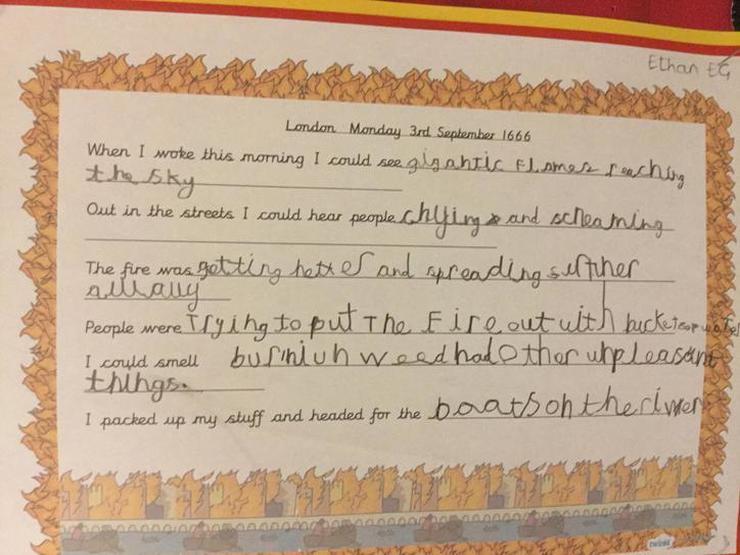 Ethan EG
London Monday 3rd September 1666
When I woke this morning I could see gigantic Flames reaching
the sky
Out in the streets I could hear people chying and screaming
The fire was getting hotter and spreading surther
People were Trying to put The Fire out with buckets of water
I could smell burning wood had other unpleasant
things.
I packed up my stuff and headed for the boats on the river
twinkl